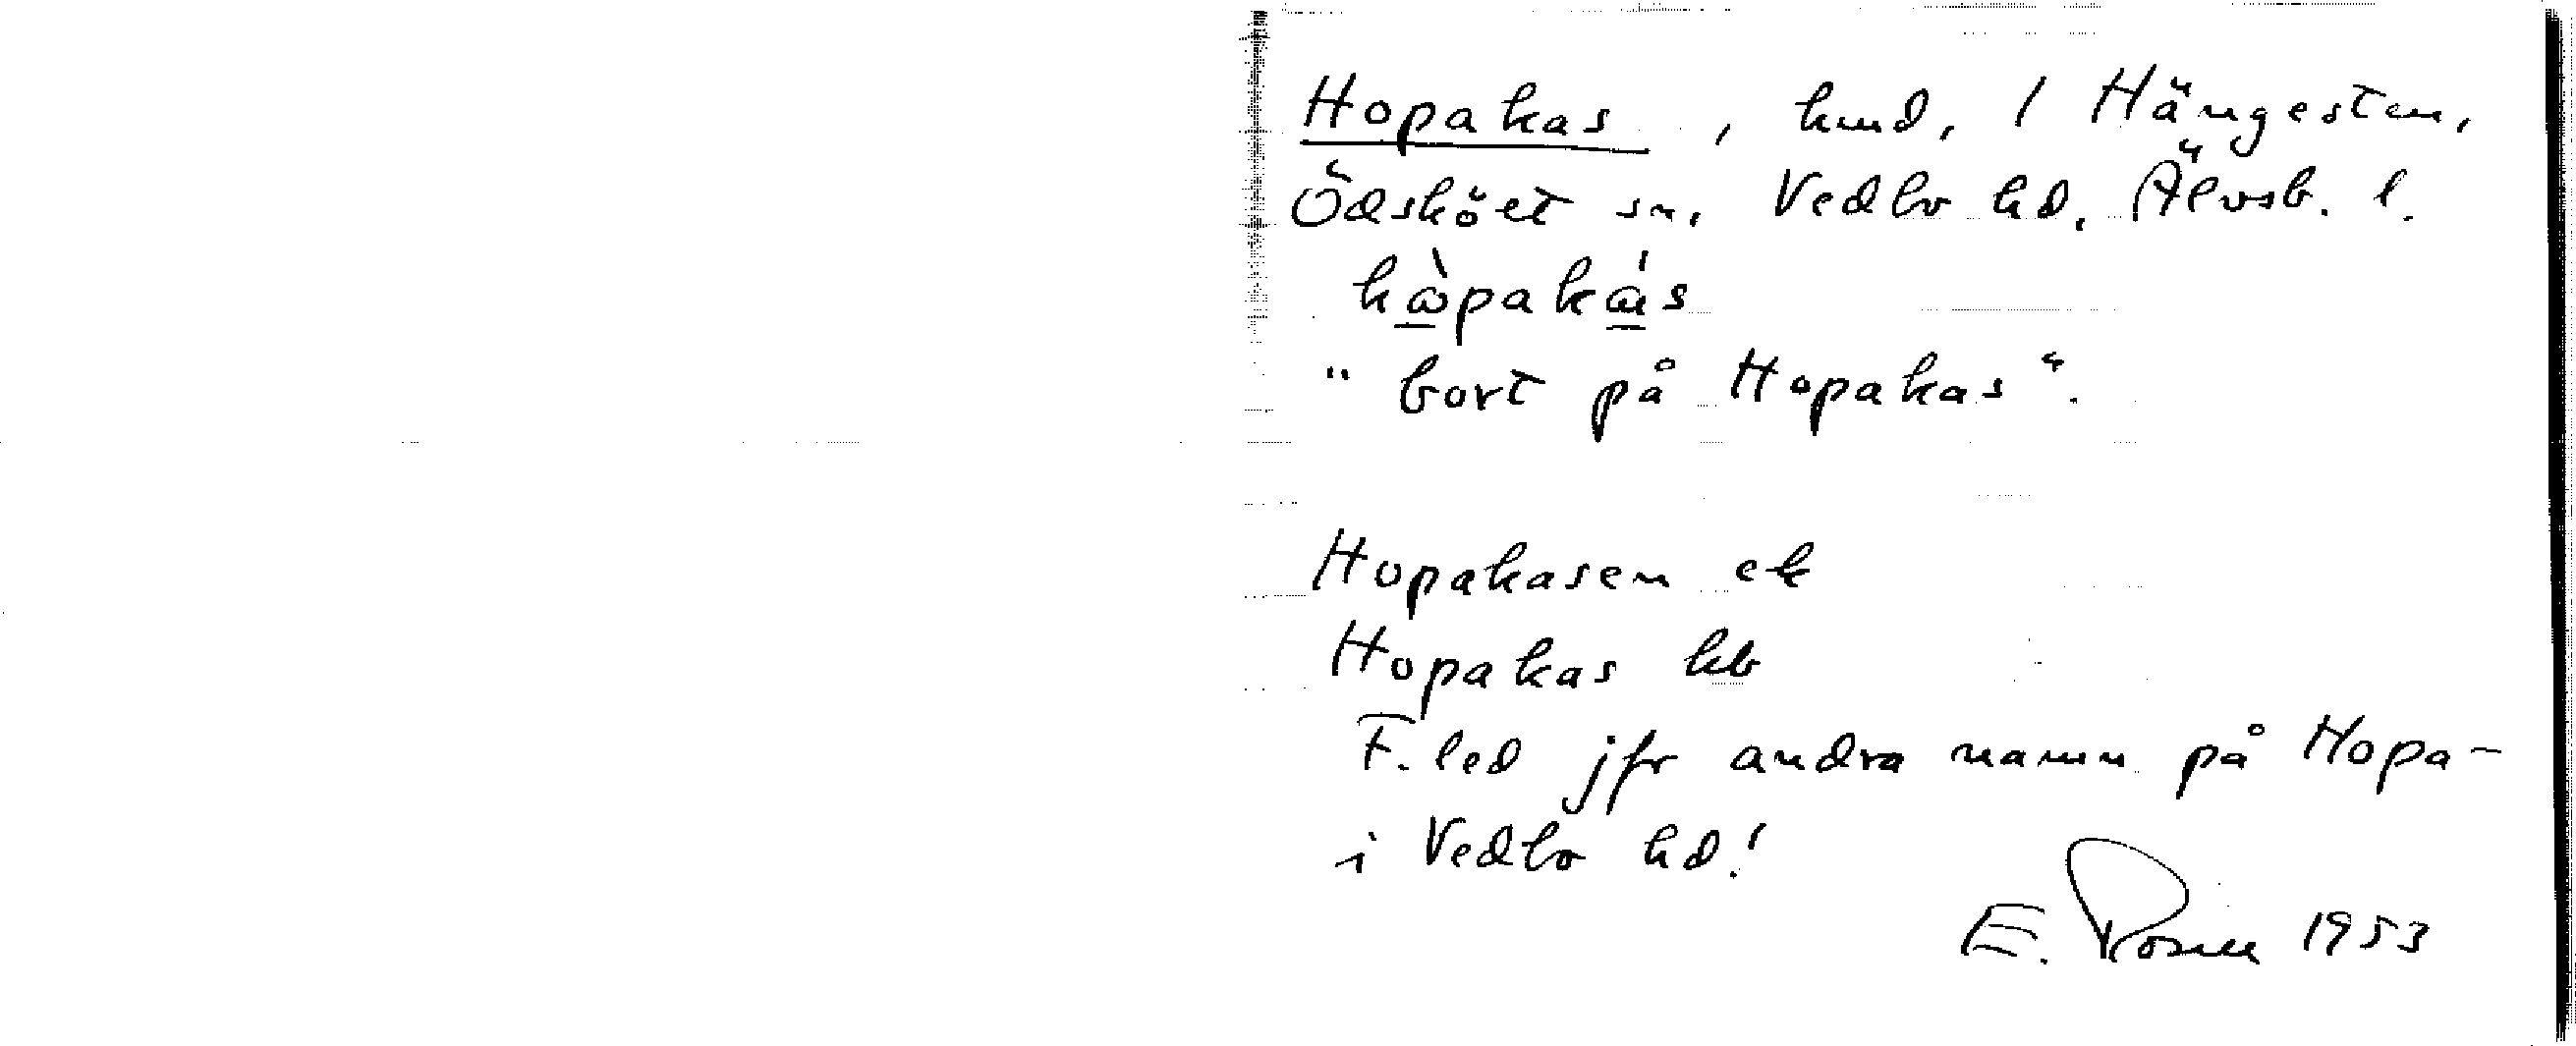 Hopakas, hmd, 1 Hängesten,
Ödsköet sn, Vedbo hd, Älvsb. l.
"bort på Hopakas".
Hopakasen ek
Hopakas kb
F. led jfr andra namn på Hopa-
i Vedbo hd!
E. Rosén 1953